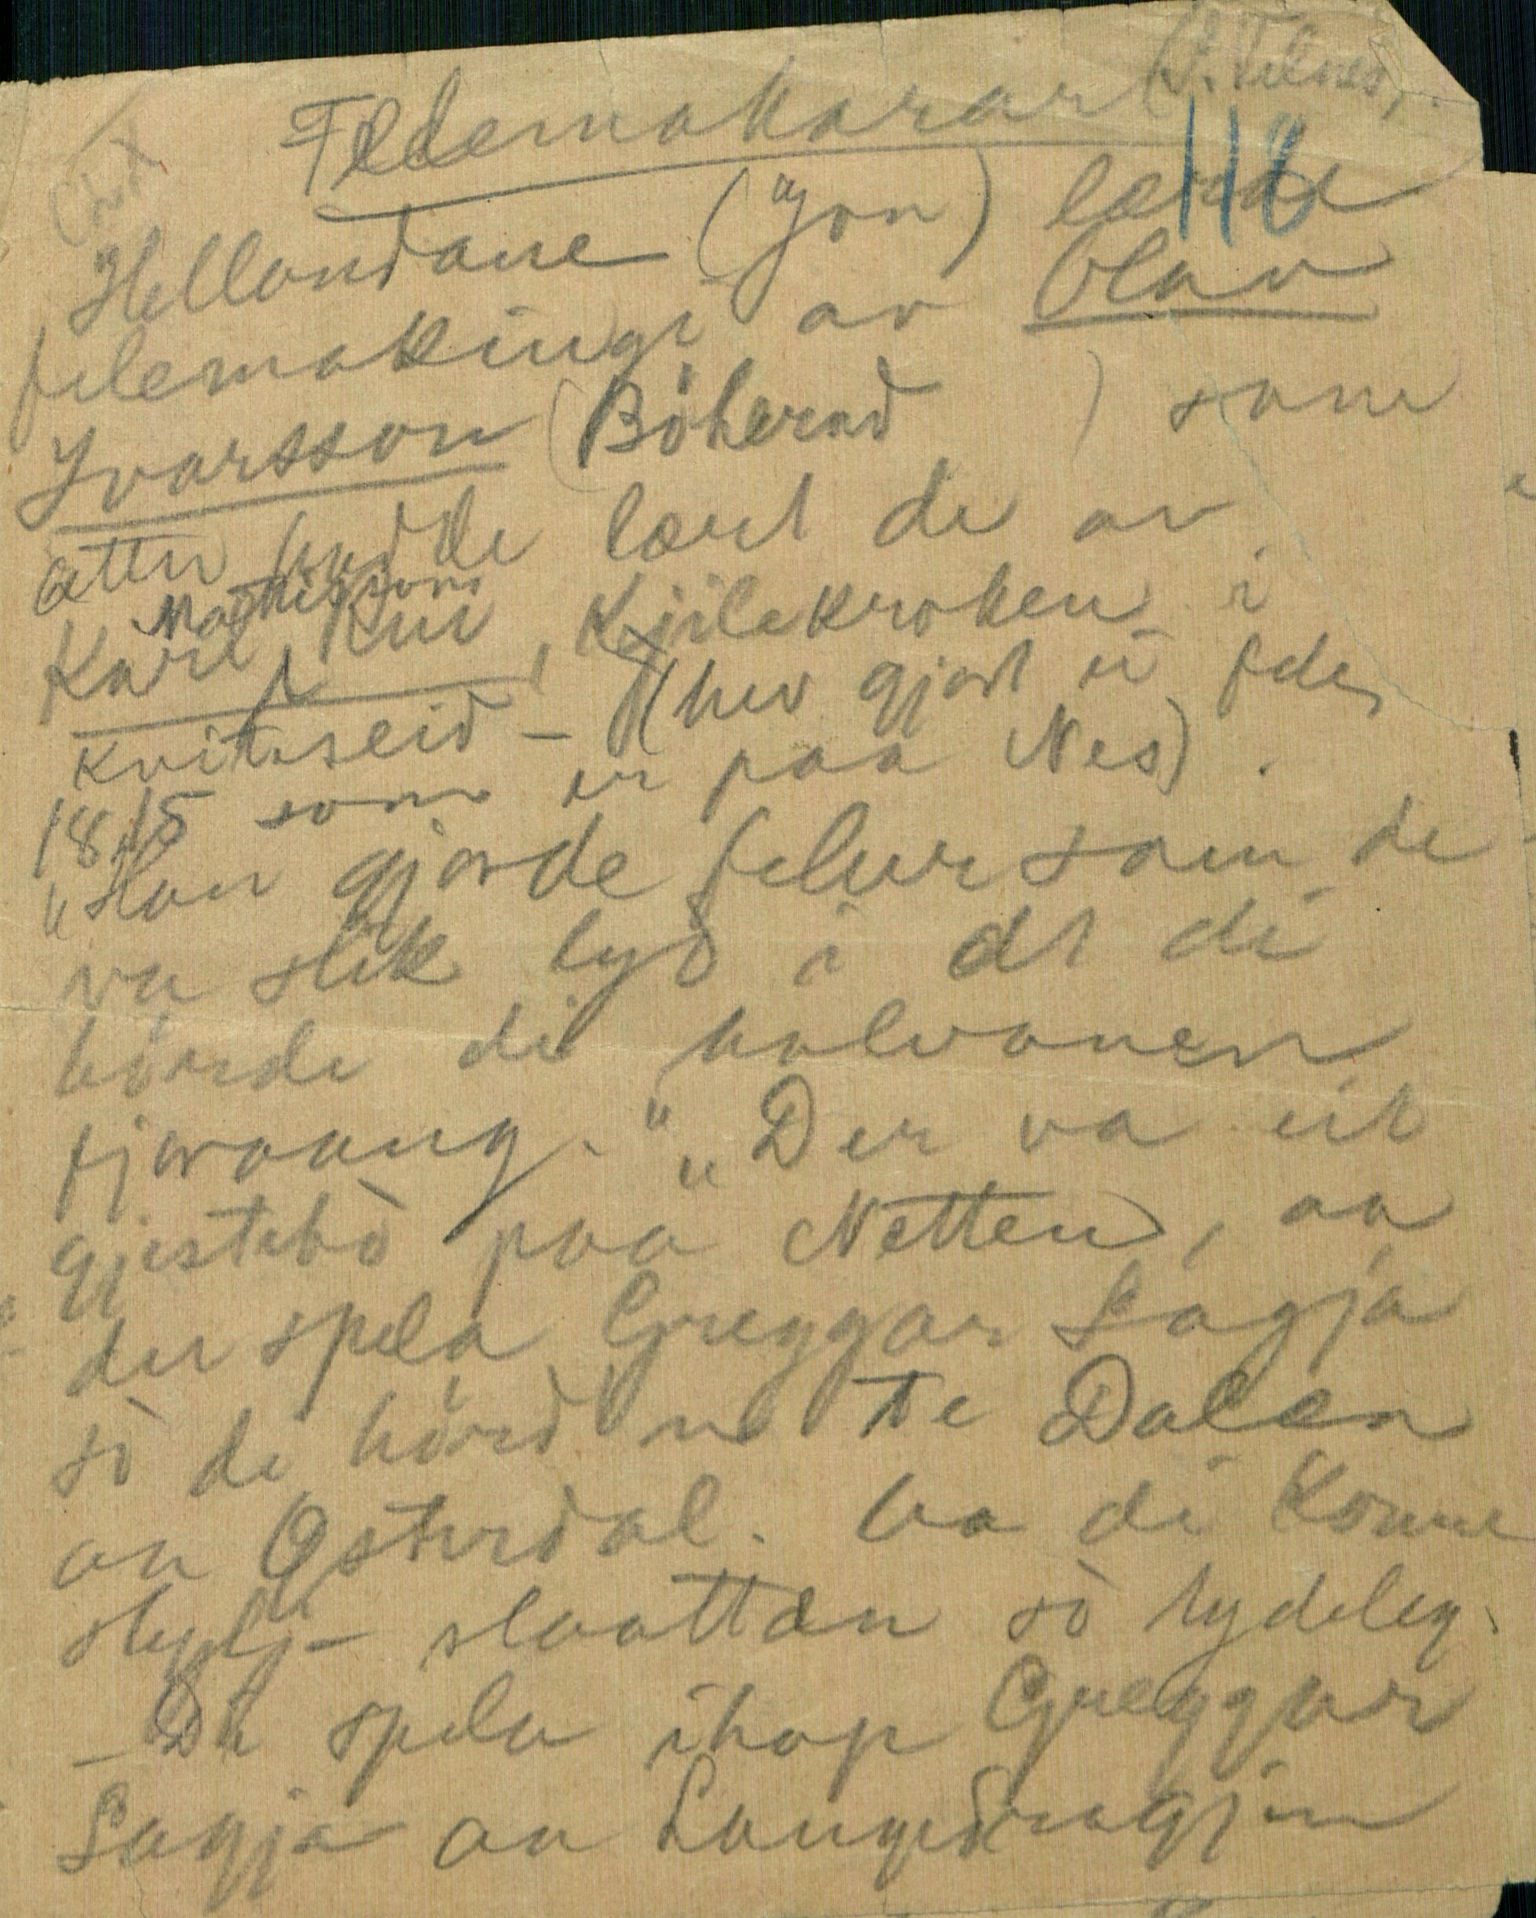 Felemakarar (S. Tilnes).
118
Hellandane (Jon) lærde
felemakingi av Olav
Ivarsson (Böherad ) som
atter hadde lært de av
Mathisson
Kare Rui, Kjilekroken i
Kvitseid – (hev gjort ei fele,
1815 som er paa Nes).
"Han gjorde felur som de
va slik lyd i at di
hörde di halvanen
fjoraang." "Der va eit
gjestebò paa Netten, aa
der spela Greggar Lagja
sò di hörd'n te Dalen
aa Østerdal. Aa di konne
skylj- slaatten sò tydeleg.
di
– Di spela ihop Greggar
Lagja aa Langedragjin